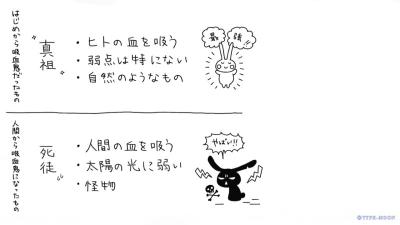 はじめから吸血鬼だったもの
"真祖"
・ヒトの血を吸う
・弱点は特にない
・自然のようなもの
最強!!
人間から吸血鬼になったもの
"死徒"
・人間の血を吸う
・太陽の光に弱い
・怪物
やばい!!
©TYPE-MOON